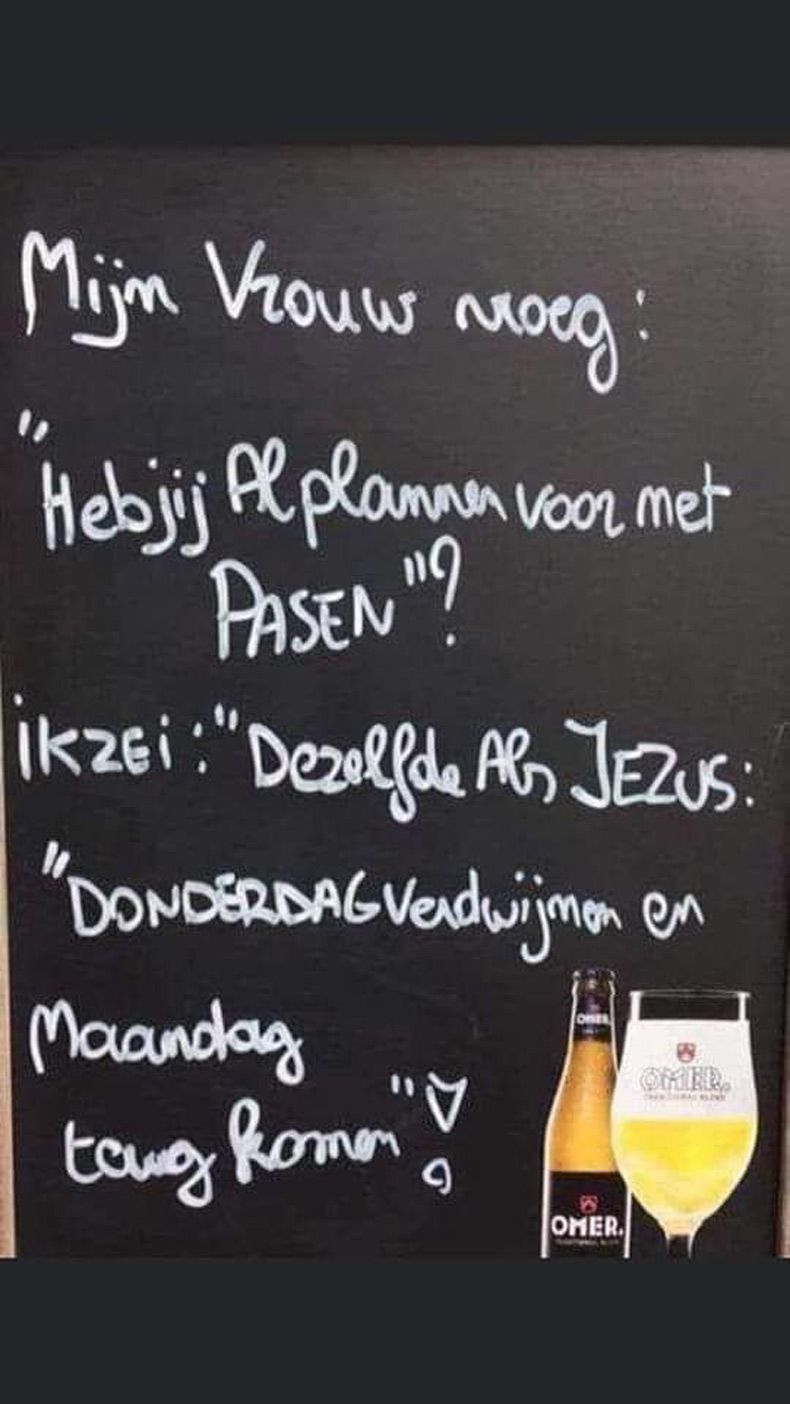 Mijn Vrouw vroeg:
"Heb jij Al plannen voor met
PASEN"?
ik ZEi: "Dezelfde Als JEZUS:
"DONDERDAG Verdwijnen en
Maandag
terug komen"!
OMER.
OMER.
TRADITIONAL BLOND
OMER.
TRADITIONAL BLOND